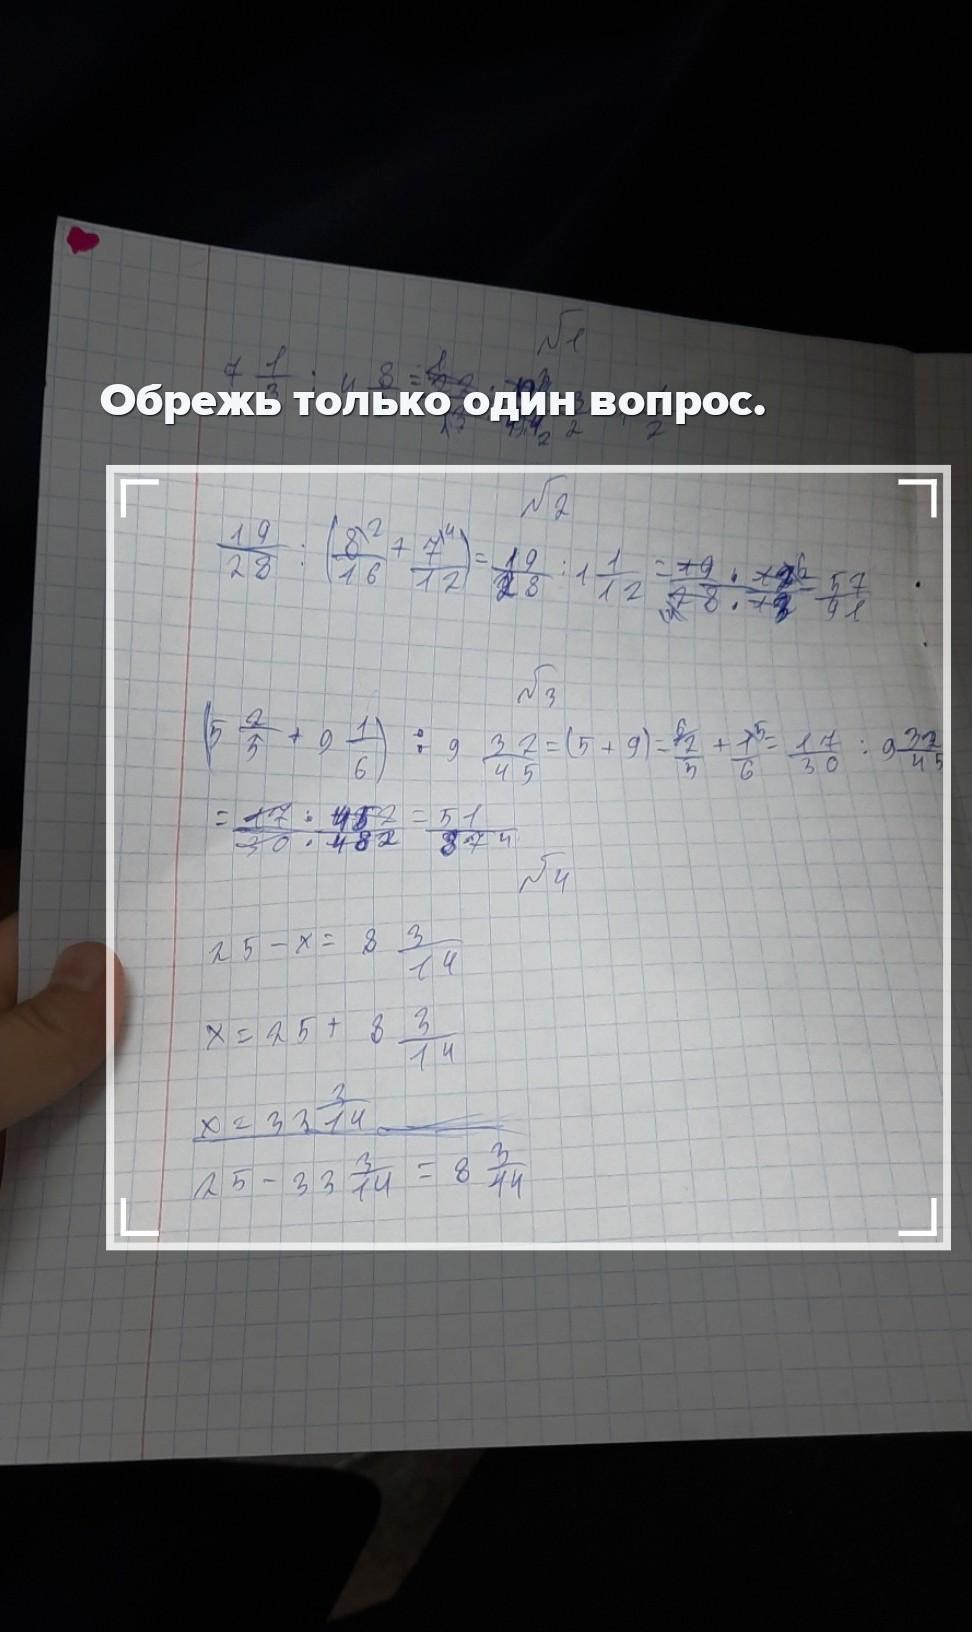 √1
7 1/3 : 4 8
Обрежь только один вопрос.
√2
19/28 : (8/16 \2 + 7/12 \4) = 19/28 : 1 1/12 = 19 · 12/28 · 13 = 57/91
√3
(5 2/5 + 9 1/6) : 9 32/45 = (5 + 9) = 2/5 + 1/6 = 17/30 : 9 32/45
= 17 · 45/30 · 482 = 51/874
√4
25 - x = 8 3/14
x = 25 + 8 3/14
x = 33 3/14
25 - 33 3/14 = 8 3/14